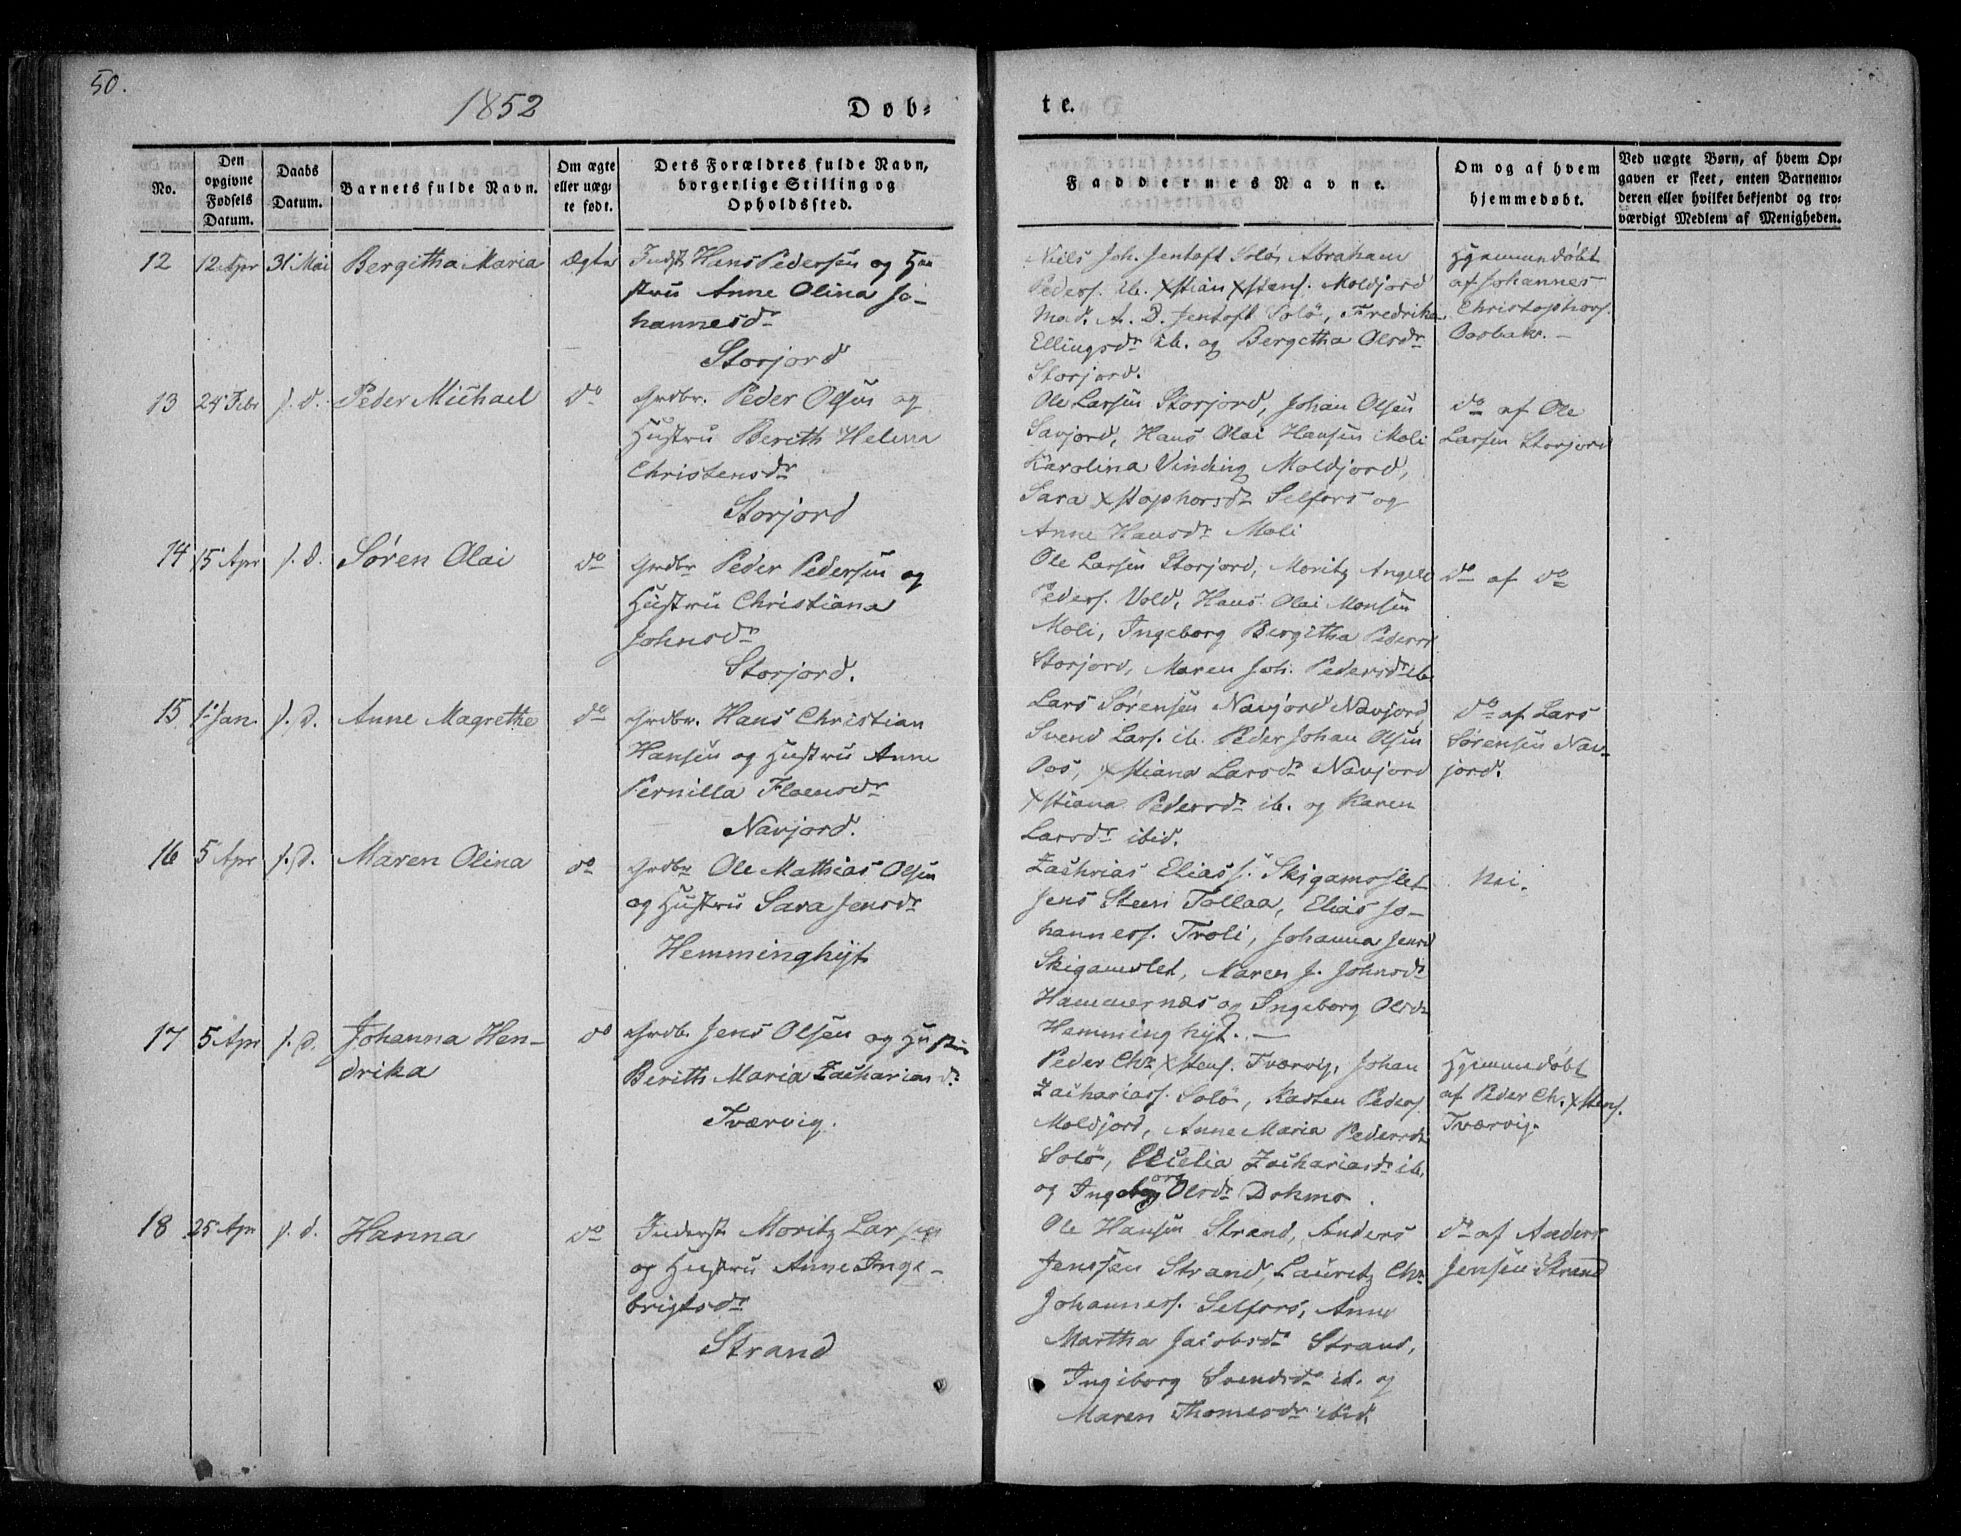 50.
1852
Døb=
te.
No.
Den
opgivne
Fødsels
Datum.
Daabs
Datum.
Barnets fulde Navn.
Om ægte
eller uæg=
te født.
Dets Forældres fulde Navn,
borgerlige Stilling og
Opholdssted.
Faddernes Navne.
Om og af hvem
hjemmedøbt.
Ved uægte Børn, af hvem Op=
gaven er skeet, enten Barnemo=
deren eller hvilket bekjendt og tro=
værdigt Medlem af Menigheden.
12 12 Apr 31 Mai Bergitha Maria Ægte
Indst Hans Pedersen og Hu
stru Anne Olina Jo-
hannesdr
Storjord
Niels Joh. Jentoft Solö, Abraham
Peders. ib. Xstian Xstens. Moldjord
Mad. A. D. Jentoft Solö, Fredrika
Ellingsdr ib. og Bergitha Olsdr
Storjord.
Hjemmedøbt
af Johannes
Christophers.
Osbak. -
13 24 Febr s. d. Peder Michael do
Grdbr. Peder Olsen og
Hustru Berith Helena
Christensdr
Storjord
Ole Larsen Storjord, Johan Olsen
Savjord, Hans Olai Hansen Moli
Karolina Vinding Moldjord,
Sara Xstophersdr Selfors og
Anne Hansdr Moli
do af Ole
Larsen Storjord
14 15 Apr s. d. Søren Olai do
Grdbr Peder Pedersen og
Hustru Christiana
Johnsdr
Storjord.
Ole Larsen Storjord, Moritz Angell
Peders. Vold, Hans Olai Monsen
Moli, Ingeborg Bergitha Pedersd
Storjord, Maren Joh. Pedersdr ib.
do af do
15 1 Jan. s. d. Anne Magrethe do
Grdbr. Hans Christian
Hansen og Hustru Anne
Pernilla Floensdr
Navjord.
Lars Sørensen Navjord Navjord,
Svend Lars. ib. Peder Johan Olsen
Oos, Xstiana Larsdr Navjord
Xstiana Pedersdr ib. og Karen
Larsdr ibid.
do af Lars
Sørensen Nav-
jord.
16 5 Apr s. d. Maren Olina do
Grdbr Ole Mathias Olsen
og Hustru Sara Jensdr
Hemminghijt
Zachrias Eliass. Skjgamoslet
Jens Steen Tollaa, Elias Jo-
hanness. Troli, Johanna Jensd
Skigamslet, Maren J. Johnsdr
Hammernæs og Ingeborg Olsdr
Hemminghijt. -
Nei.
17 5 Apr s. d. Johanna Hen-
drika
do
Grdb. Jens Olsen og Hustru
Berith Maria Zachariasd.
Tværvig.
Peder Chr. Xstens. Tværvig, Johan
Zacharias. Solö, Kasten Peders.
Moldjord, Anne Maria Pedersdr
Solö, Cecilia Zachariasdr ib.
og Ingeborg Olsdr Dokmo.
Hjemmedøbt
af Peder Ch. Xstens.
Tværvig.
18 25 Apr s. d. Hanna do
Inderst Moritz Larsen
og Hustru Anne Inge-
brigtsdr
Strand
Ole Hansen Strand, Anders
Jenssen Strand, Lauritz Chr.
Johannes. Selfors, Anne
Martha Jacobsdr Strand,
Ingeborg Svendsdr ib. og
Maren Thomesdr ibid.
do af Anders
Jensen Strand